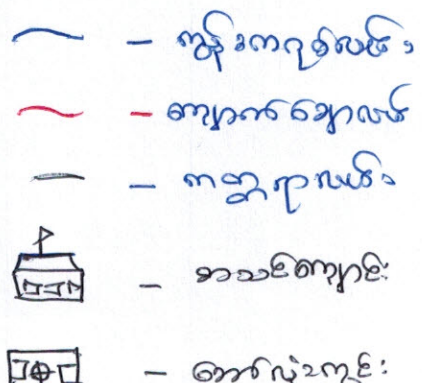 - ကွန်ကရစ်လမ်း
- ကျောက်ချောလမ်
- ကတ္တရာလမ်း
- စာသင်ကျောင်း
- ဘောလုံးကွင်း